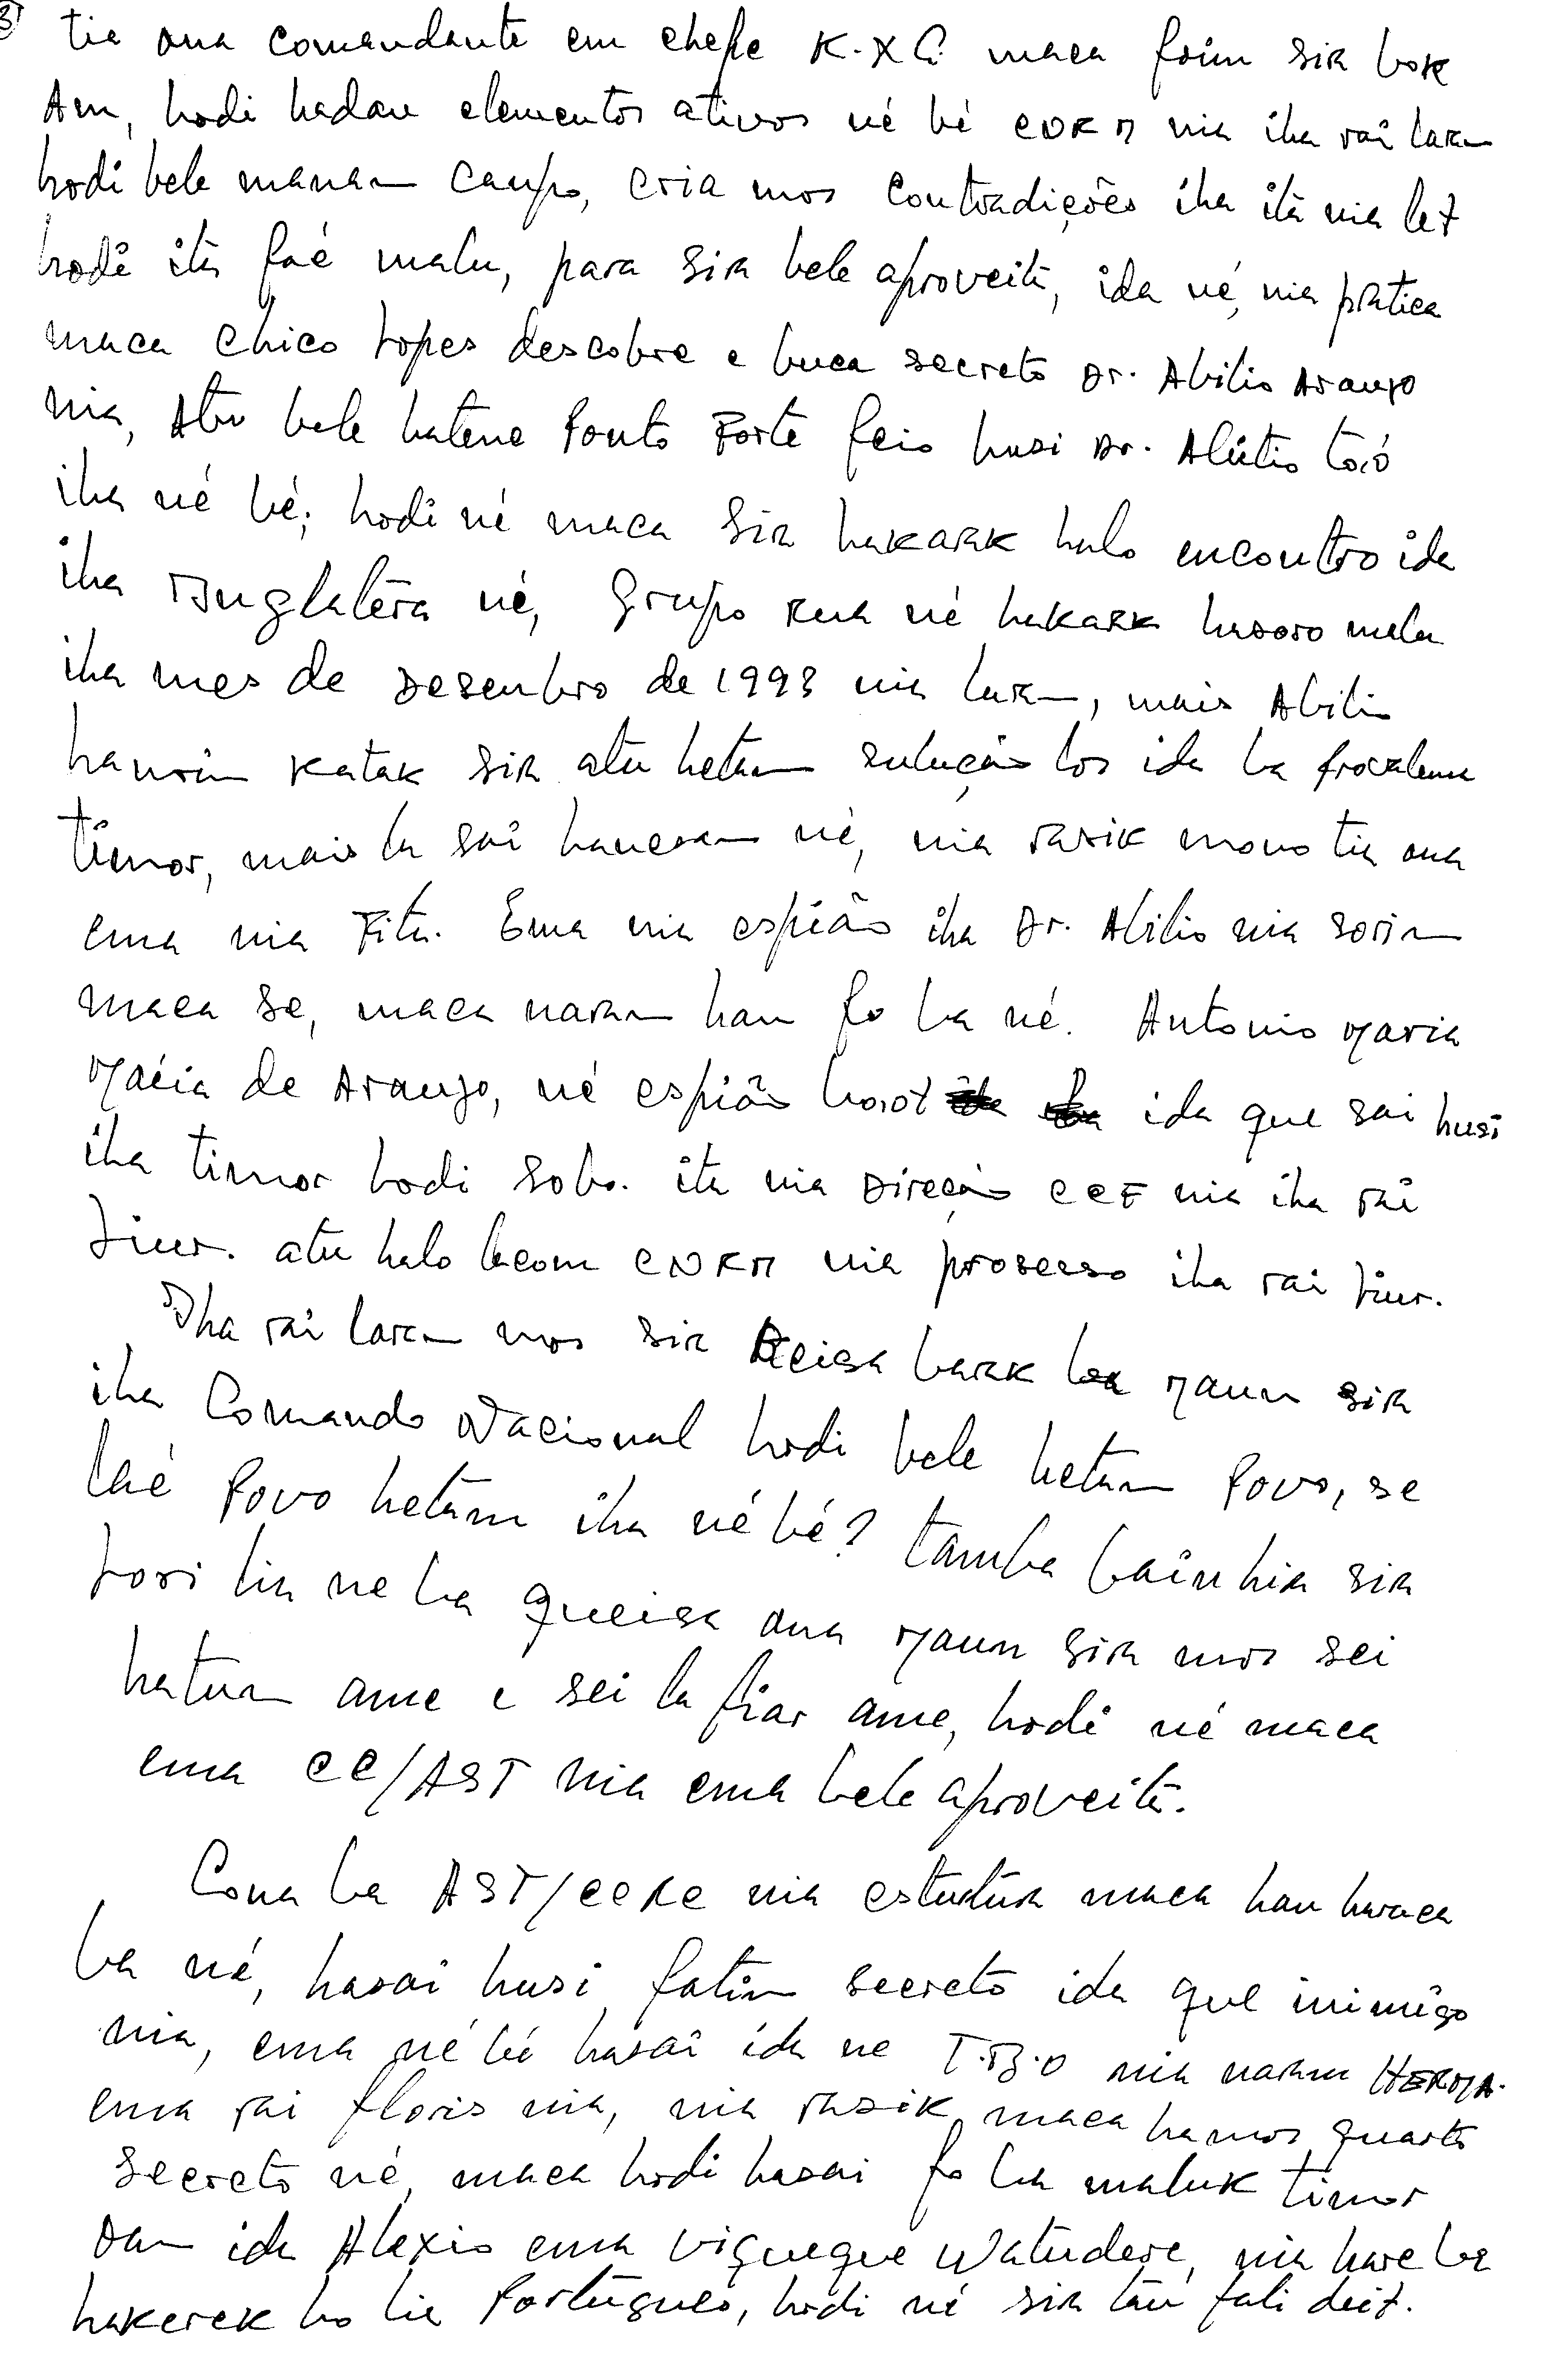 3
tia ona comandante em chefe K.X G. maca foin sira bok
Am, hodi hadau elementos ativos né bé CNRM nia iha rai laran
hodi bele manan campo, cria mos contradições iha ita nia let
hodi ita faé malu, para sira bele aproveita, ida né, nia pratica
maca Chico Lopes descobre e buca secreto Dr. Abilio Araujo
nia, Atu bele hatene Ponto Forte feio husi Dr. Abilio to,ó
iha né bé; hodi né maca sira hakarak halo encontro ida
iha Inglatera né, Grupo rua né hakarak hasoro malu
iha mes de Desembro de 1993 nia laran, mais Abilio
hanoin katak sira atu hetan solução los ida ba problema
timor, mais la sai hanesan né, nia rasik monu tia ona
ema nia Fitu. Ema nia espião iha Dr. Abilio nia sorin
maca se, maca naran hau fo ba né. Antonio Maria
Mácia de Araujo, né espião boot ida que sai husi
iha timor hodi sobo ita nia Direção CCF nia iha rai
liur. atu halo lacom CNRM nia prosesso iha rai liur.
Iha rai laran mos sira Qeisa barak ba Maun sira
iha Comando Nacional hodi bele hetan Povo, se
laé Povo hetan iha né bé? tamba bainhira sira
lori lia ne ba queisa ona Maun sira mos sei
hatun ame e sei la fiar ame, hodi né maca
ema CC/AST nia ema bele aproveita.
Cona ba AST/CCRC nia estutura maca hau haraca
ba né, hasai husi fatin secreto ida que inimigo
nia, ema né bé hasai ida ne T.B.O nia naran HERMA.
ema rai floris nia, nia rasik maca hamos quarto
secreto né, maca hodi hasai fo ba maluk timor
Oan ida Alexio ema Viqueque Watudere, nia hare ba
hakerek ho lia Portugues, hodi né sira tau fali deit.